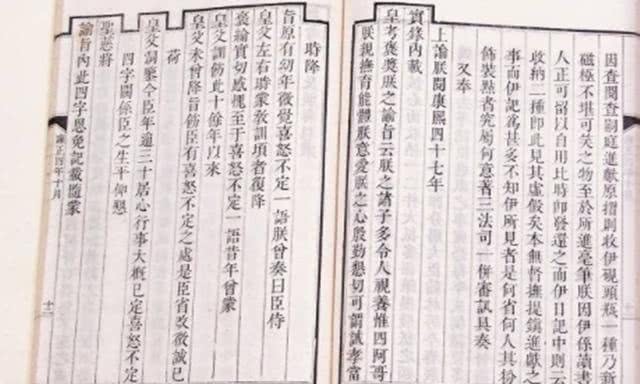 因查閱嗣庭進獻原摺則收伊硯頭瓶一種乃新
磁極不堪可矣之物至於所進毫筆朕因伊係讀書
人正可留以自用比時卽發還之而伊日記中則云
收納二種卽此見其虛假矣本無督撫提鎮進獻之
事而伊記爲甚多不知伊所見者是何省何人其扮
飾裝點者究屬何意著三法司一併審訊具奏
又奉
上諭朕閱康熙四十七年
實錄內載
皇考褒獎朕之諭旨云朕之諸子多令人視養惟四阿哥
朕親撫育能體朕意愛朕之心殷勤懇切可謂誠孝當
時降
旨原有幼年微覺喜怒不定一語朕曾奏曰臣侍
皇父左右時蒙教訓頃者復降
褒綸實切感愧至于喜怒不定一語昔年曾蒙
皇父訓飭此十餘年以來
皇父未曾降旨飭臣有喜怒不定之處是臣省改微誠已
荷
皇父調鑒今臣年逾三十居心行事大概已定喜怒不定
四字關係臣之生平仰懇
聖慈將
諭旨內此四字恩免記載隨蒙
雍正四年十月